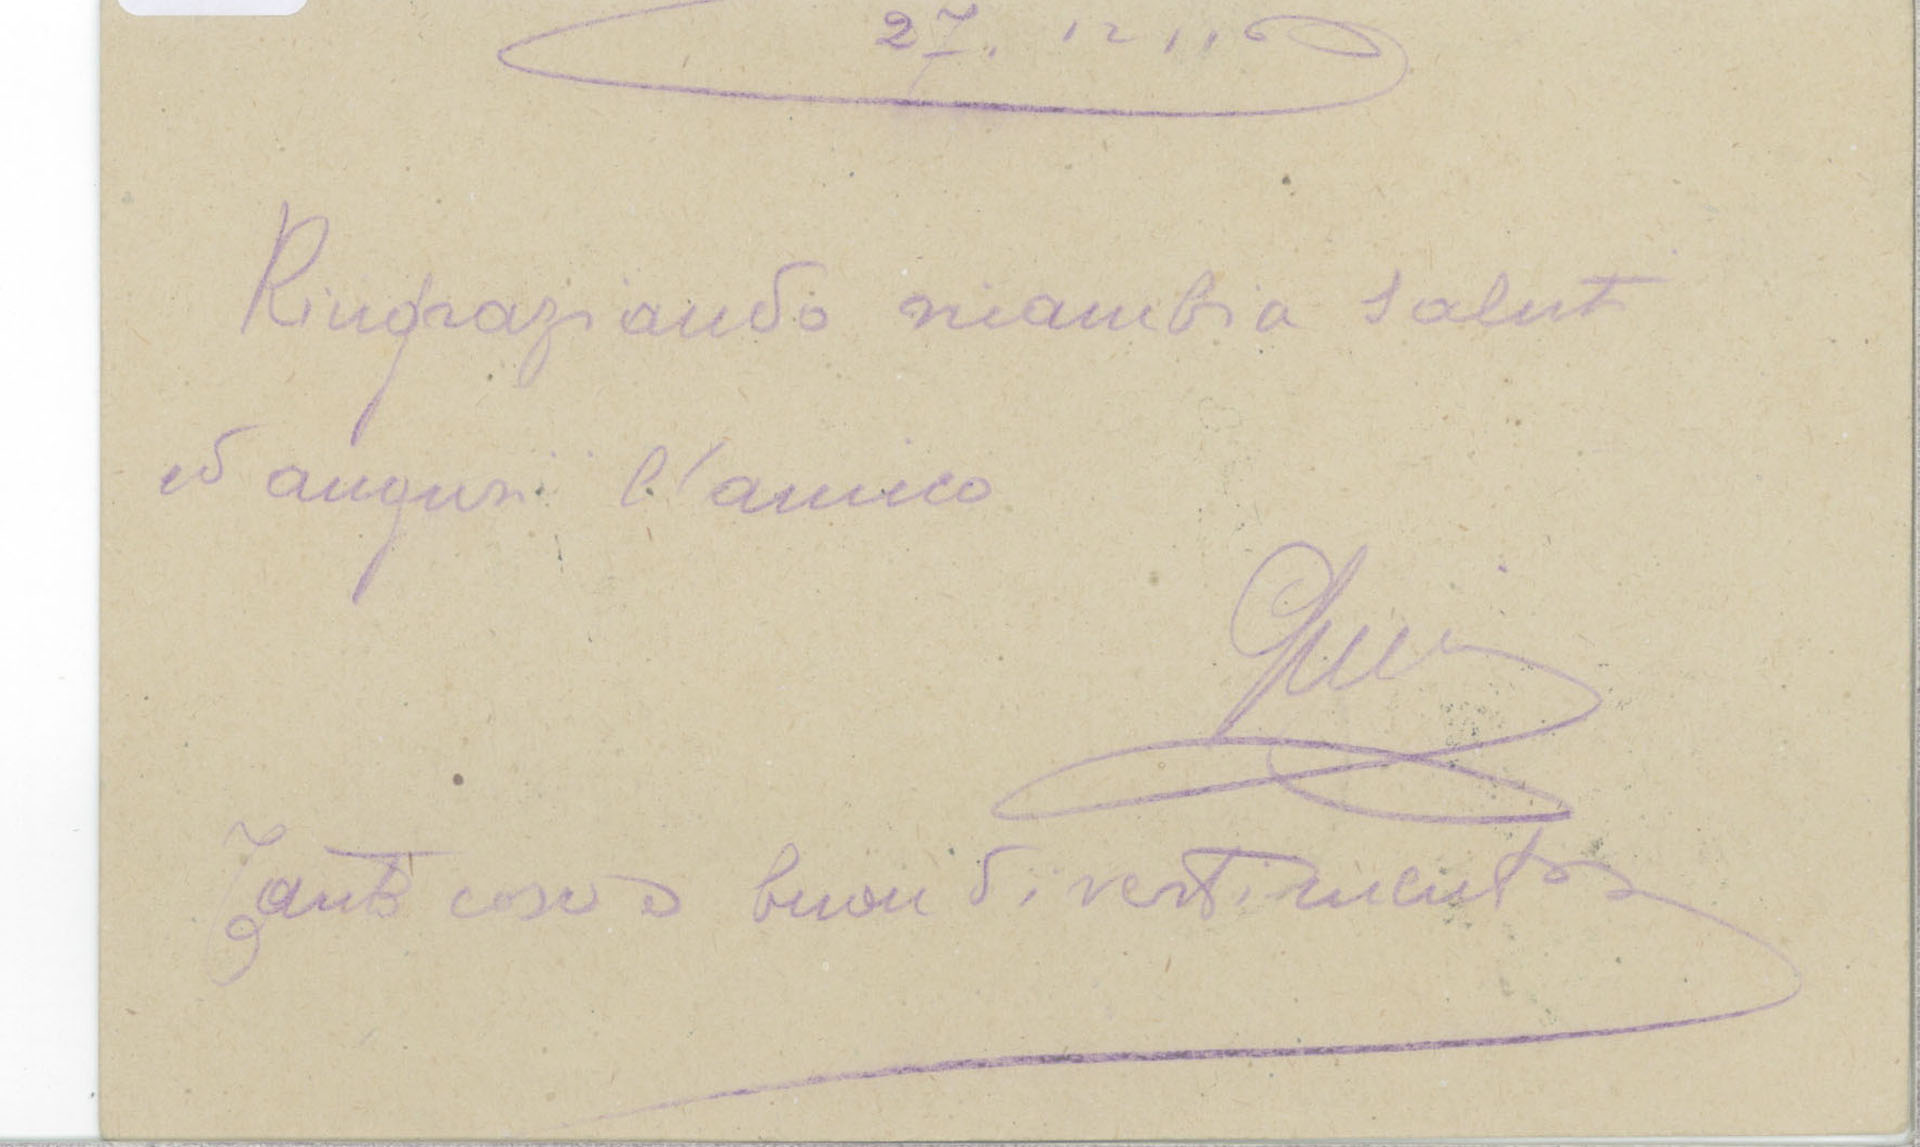 27. 12 116
Ringraziando ricambia saluti
ed auguri l'amico
Tante cose e buon divertimento